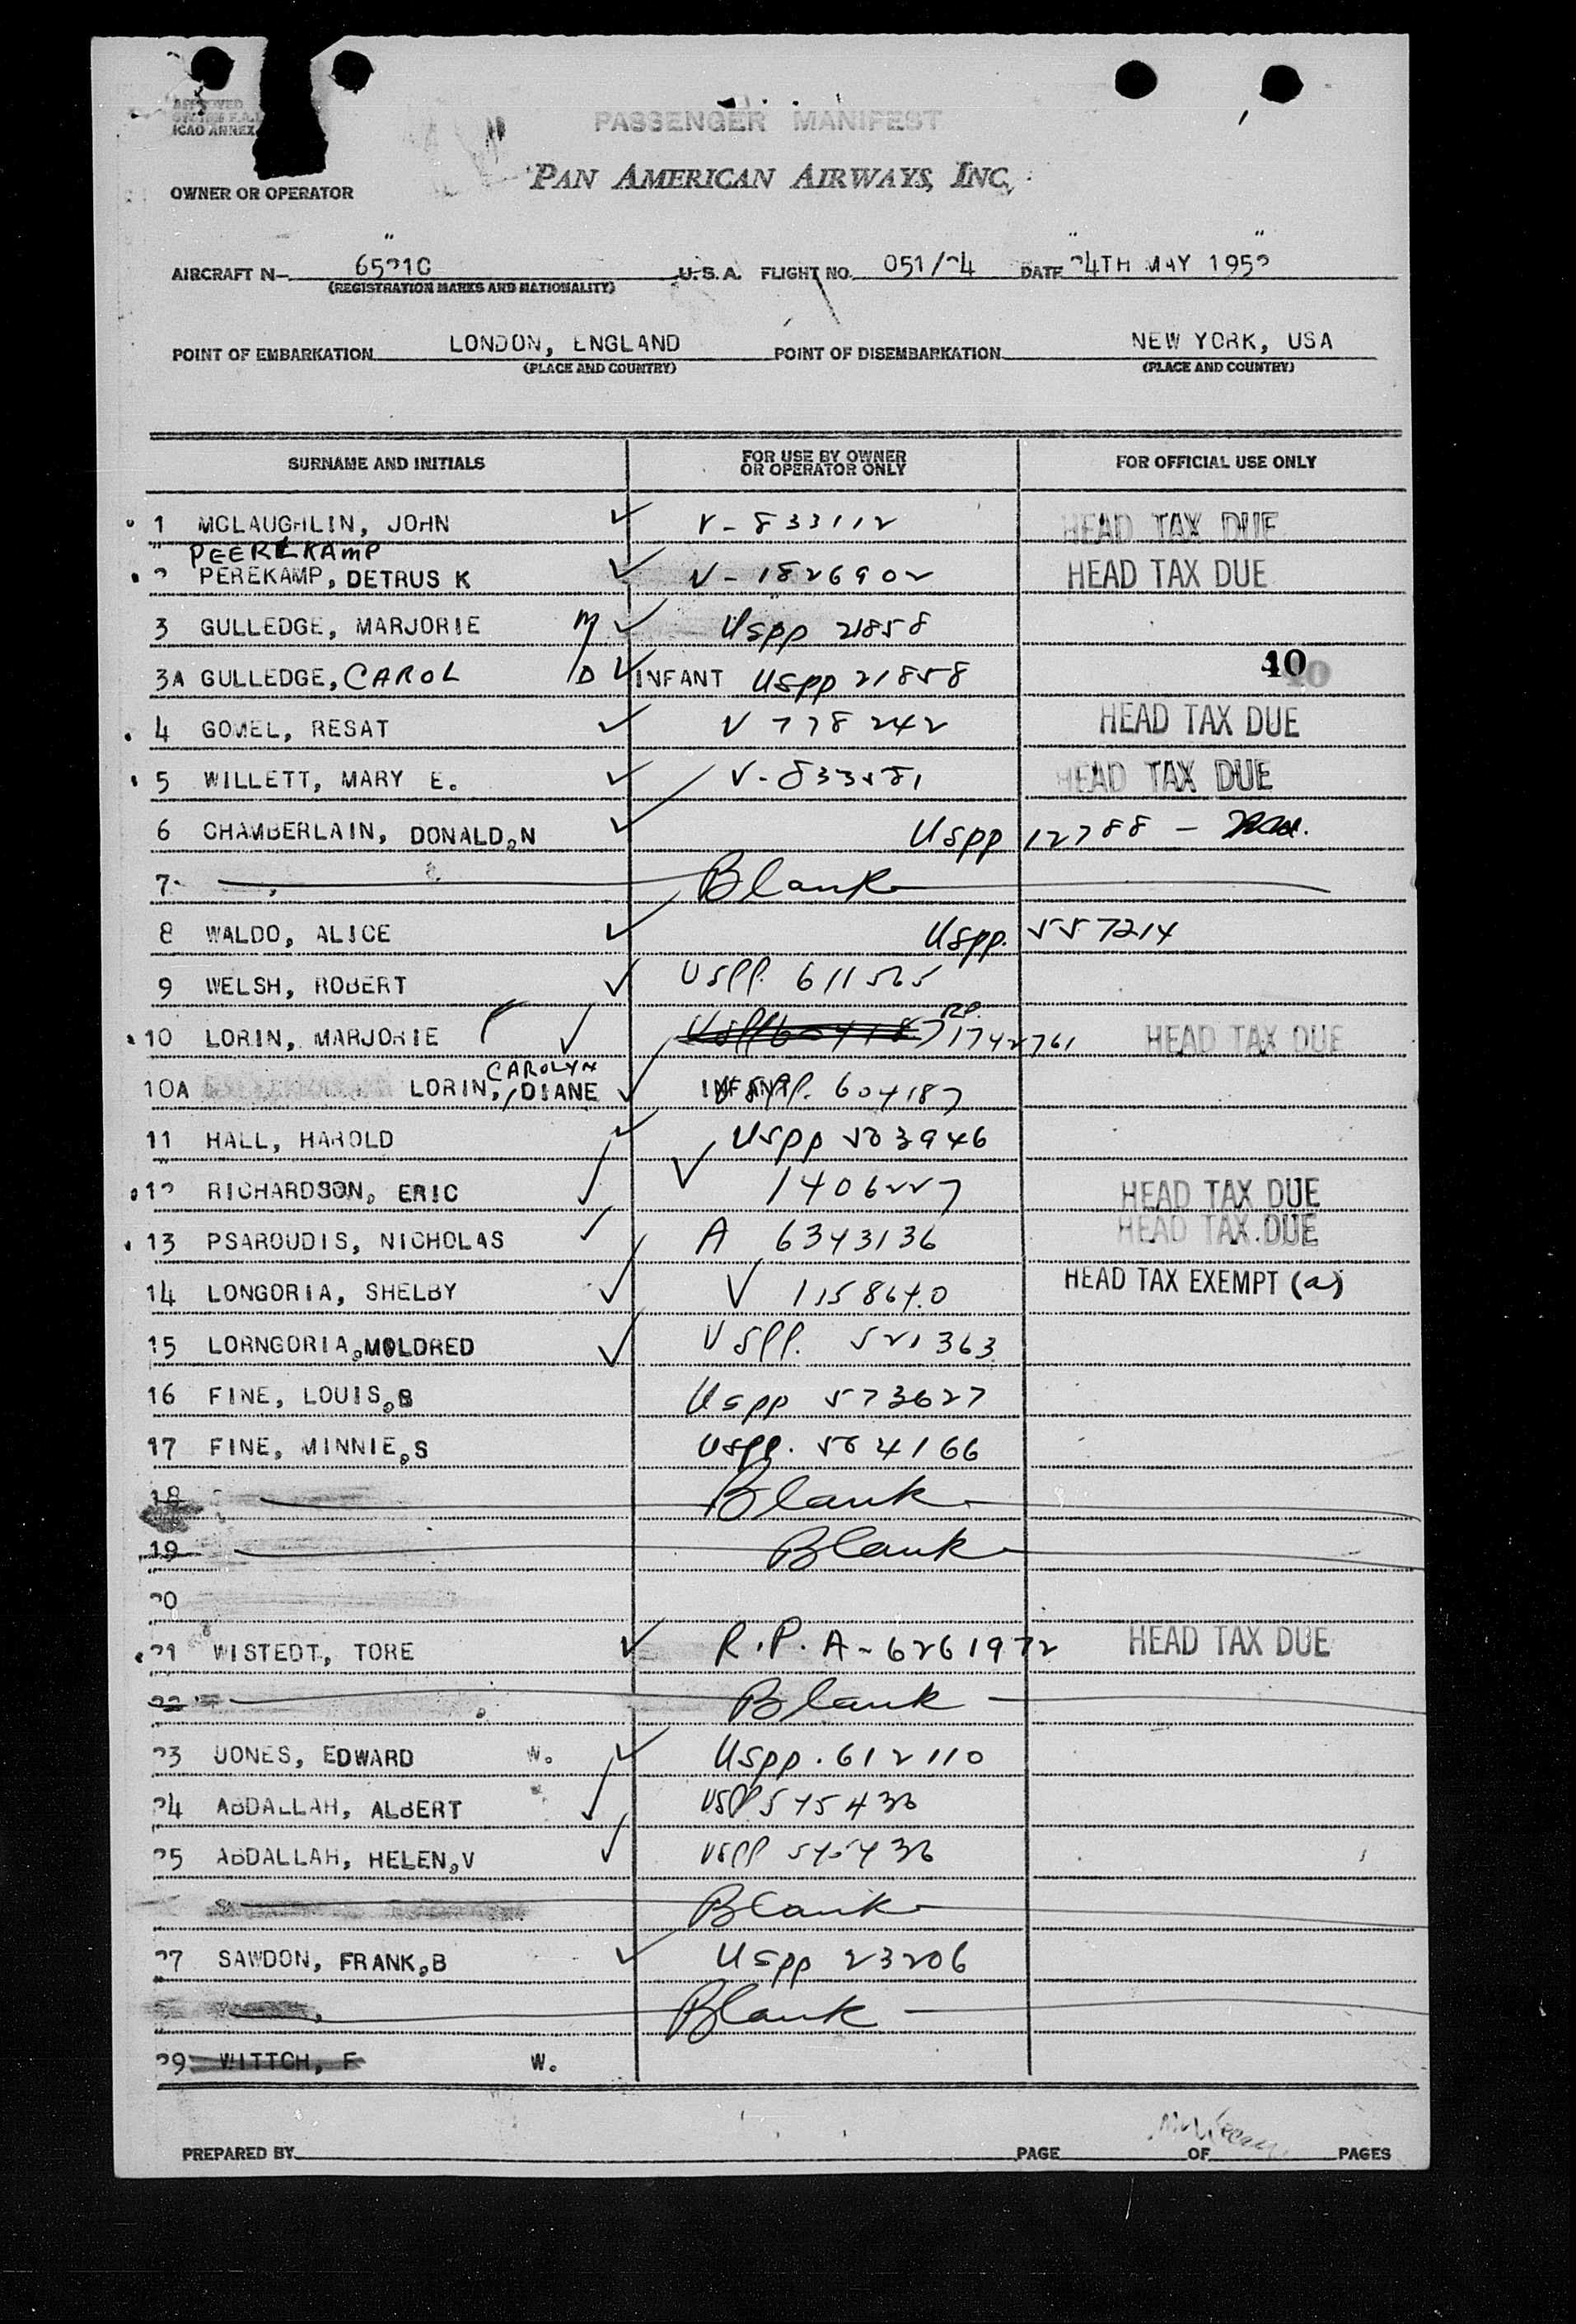 APPROVED
ICAO ANNEX
PASSENGER MANIFEST
PAN AMERICAN AIRWAYS, INC.
OWNER OR OPERATOR
AIRCRAFT N- 6521C U.S.A. FLIGHT NO. 051/24 DATE 24TH MAY 1952
(REGISTRATION MARKS AND NATIONALITY)
POINT OF EMBARKATION LONDON, ENGLAND POINT OF DISEMBARKATION NEW YORK, USA
(PLACE AND COUNTRY) (PLACE AND COUNTRY)
SURNAME AND INITIALS FOR USE BY OWNER OR OPERATOR ONLY FOR OFFICIAL USE ONLY
1 MCLAUGHLIN, JOHN ✓ V-833112 HEAD TAX DUE
PEERLKAMP
2 PEREKAMP, DETRUS K ✓ V-1826902 HEAD TAX DUE
3 GULLEDGE, MARJORIE M ✓ USPP 21858
3A GULLEDGE, CAROL D ✓ INFANT USPP 21858 10
4 GOMEL, RESAT ✓ V 778242 HEAD TAX DUE
5 WILLETT, MARY E. ✓ V-833581 HEAD TAX DUE
6 CHAMBERLAIN, DONALD,N ✓ USPP 12788 -
7 Blank
8 WALDO, ALICE ✓ USPP. 557214
9 WELSH, ROBERT ✓ USPP. 611565
10 LORIN, MARJORIE ✓ RP. 1742761 HEAD TAX DUE
CAROLYN
10A LORIN, DIANE ✓ INFANT USPP. 604187
11 HALL, HAROLD ✓ USPP 503946
12 RICHARDSON, ERIC ✓ ✓ 1406227 HEAD TAX DUE
13 PSAROUDIS, NICHOLAS ✓ A 6343136 HEAD TAX DUE
14 LONGORIA, SHELBY ✓ V 1158640 HEAD TAX EXEMPT (a)
15 LORNGORIA, MOLDRED ✓ USPP. 521363
16 FINE, LOUIS,B USPP 573627
17 FINE, MINNIE,S USPP. 564166
18 Blank
19 Blank
20
21 WISTEDT, TORE ✓ R.P. A-6261972 HEAD TAX DUE
22 Blank
23 JONES, EDWARD W. ✓ USPP. 612110
24 ABDALLAH, ALBERT ✓ USPP 545436
25 ABDALLAH, HELEN,V ✓ USPP 545436
Blank
27 SAWDON, FRANK,B ✓ USPP 23206
Blank
29 WITTCH, F W.
PREPARED BY PAGE OF PAGES